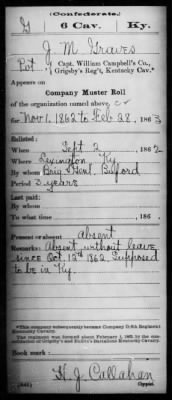 (Confederate.)
G 6 Cav. Ky.
J M Graves
Pvt, Capt. William Campbell's Co.,
Grigsby's Reg't, Kentucky Cav.*
Appears on
Company Muster Roll
of the organization named above,
for Nov 1. 1862 to Feb 28, 1863
Enlisted:
When Sept 2, 1862
Where Lexington, Ky.
By whom Brig Genl. Buford
Period 3 years
Last paid:
By whom
To what time , 186 .
Present or absent Absent
Remarks: Absent without leave
since Oct. 12th 1862. Supposed
to be in Ky.
*This company subsequently became Company G 6th Regiment
Kentucky Cavalry.
The regiment was formed about February 1, 1863, by the con-
solidation of Grigsby's and Battalions Kentucky Cavalry.
Book mark:
H. J. Callahan
(642) Copyist.